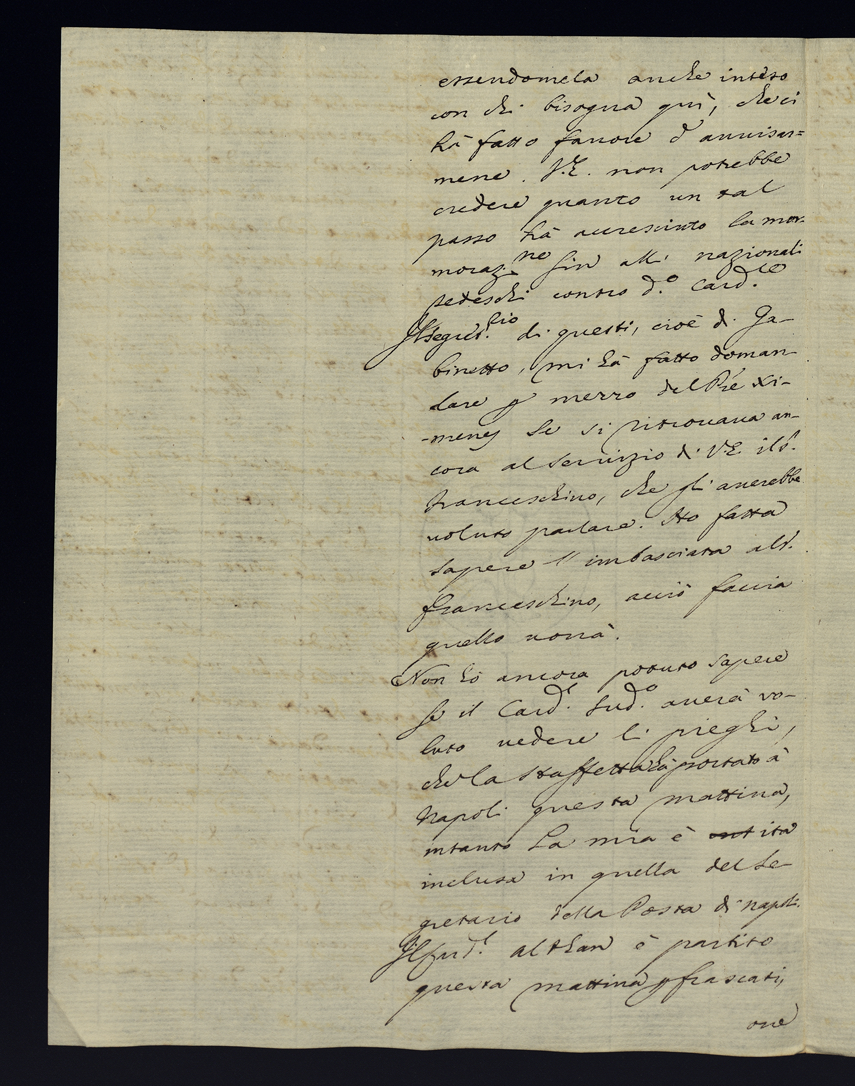 essendomela anche inteso
con chi bisogna quì, che ci
hà fatto favore d'avvisar=
mene. V.E. non potrebbe
credere quanto un tal
passo hà accresciuto la mor=
moraz.ne fin alli nazionali
tedeschi contro d.o Card.le
Il segret.rio di questi, cioè di Ga-
binetto, mi hà fatto doman-
dare p mezzo del P.re Xi-
-menes se si ritrovava an-
cora al servizio di V.E. il S.
Franceschino, che gli averebbe
voluto parlare. Ho fatta
sapere l'imbasciata al S.
Franceschino, acciò faccia
quello vorrà.
Non hò ancora potuto sapere
se il Card.l Sud.o averà vo-
luto vedere li pieghi,
che la staffetta hà portato à
Napoli questa mattina,
intanto la mia è ita
inclusa in quella del Se-
gretario della Posta di Napoli.
Il Card.l Althan è partito
questa mattina p Frascati,
ove